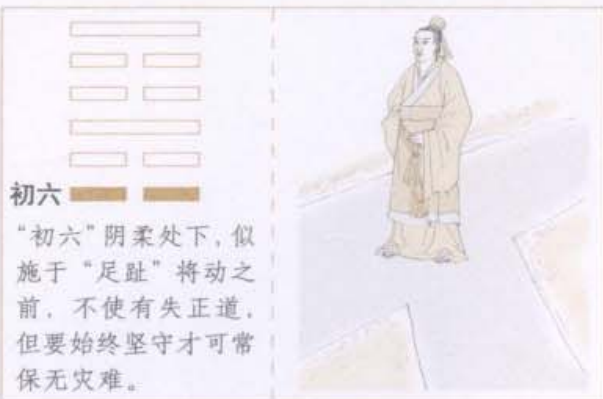 初六
“初六”阴柔处下，似
施于“足趾”将动之
前，不使有失正道，
但要始终坚守才可常
保无灾难。